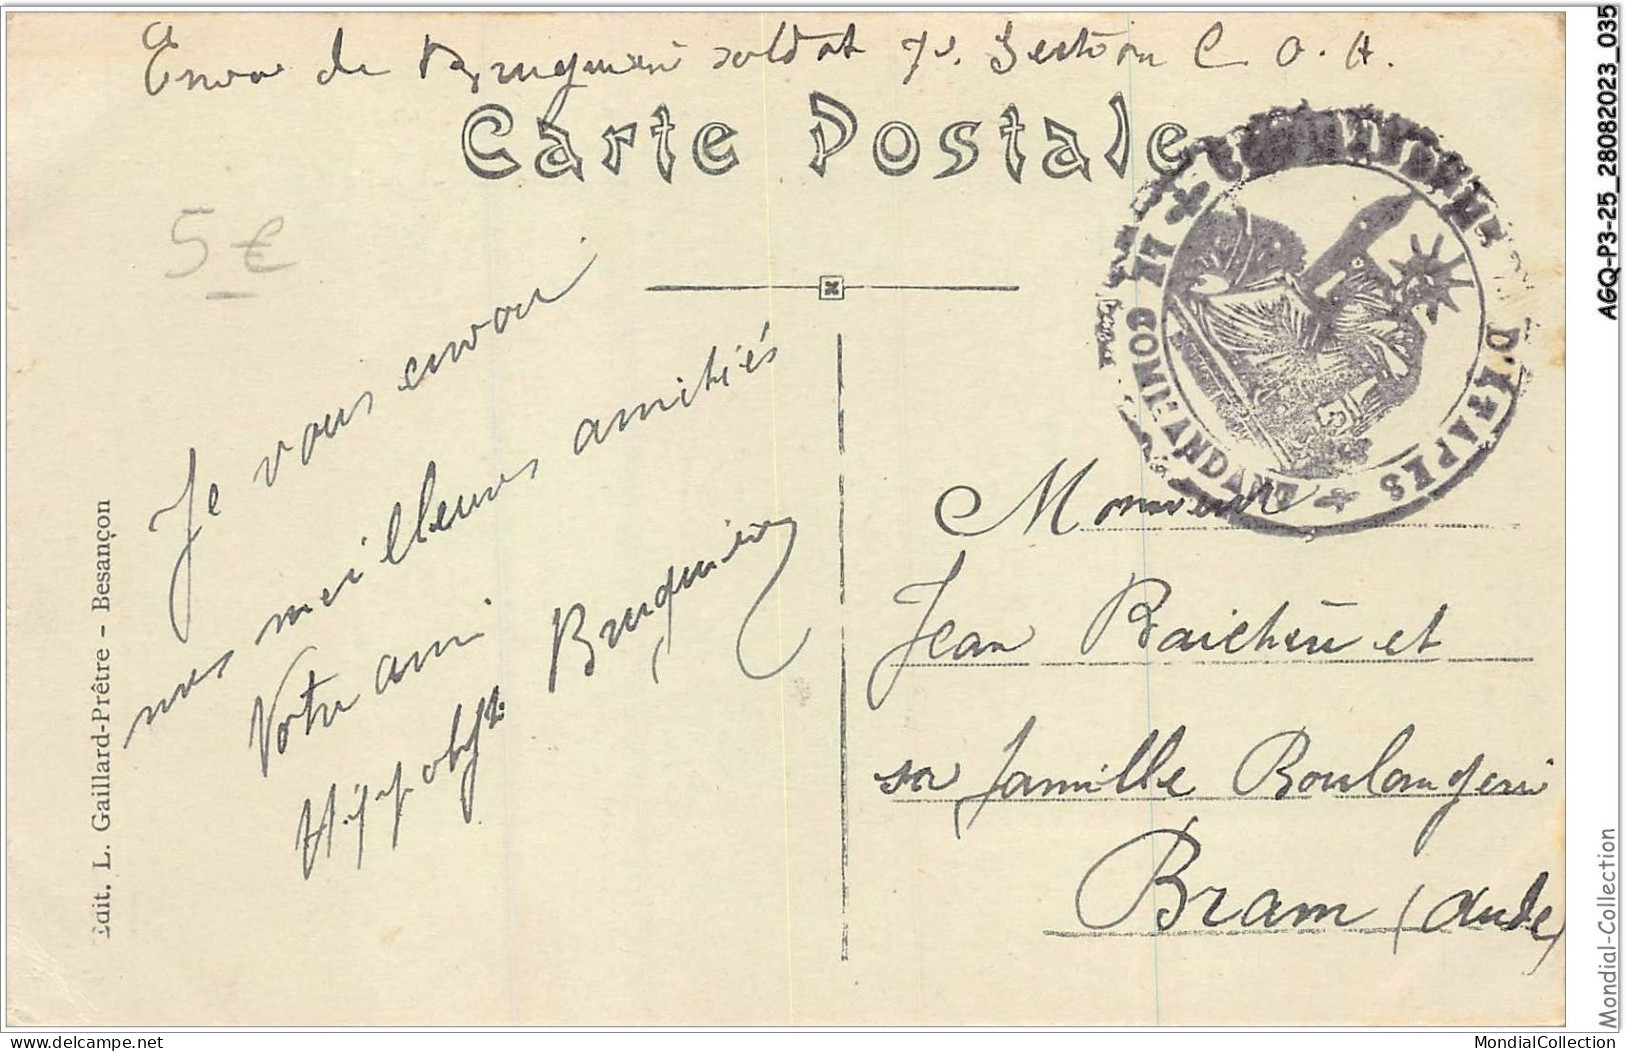 Envoi de Bruguière soldat 7e. Section C. O. A.
Carte Postale
5 €
Je vous envoi
mes meilleures amitiés
Votre ami
Hippolyte Bruguière
Edit. L. Gaillard-Prêtre - Besançon
LE COMMANDANT D'ETAPES
Monsieur
Jean Raichère et
sa famille Boulangerie
Bram (Aude)
AGQ-P3-25_28082023_035
Mondial-Collection
delcampe.net
MondialCollection